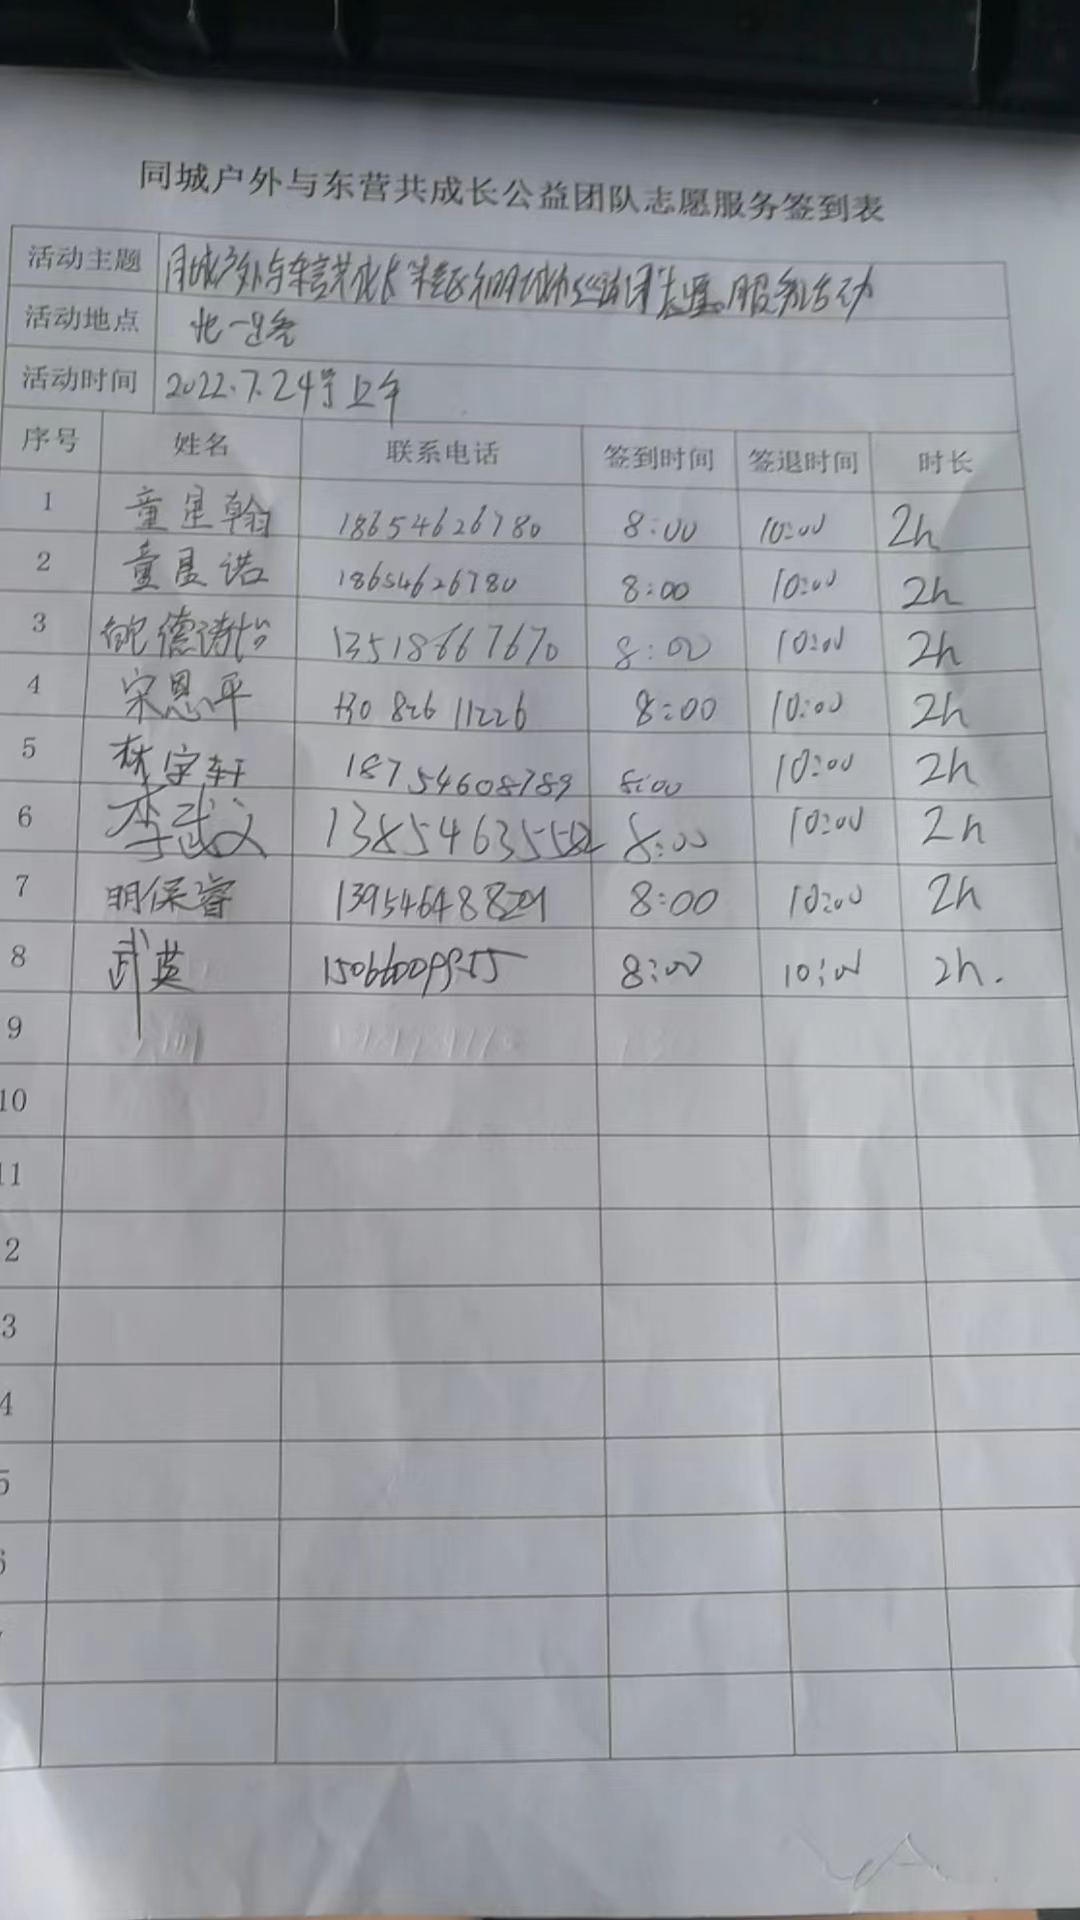 同城户外与东营共成长公益团队志愿服务签到表
活动主题 同城户外与东营共成长 志愿服务活动
活动地点 北一路
活动时间 2022.7.24号上午
序号 姓名 联系电话 签到时间 签退时间 时长
1 童星翰 18654626780 8:00 10:00 2h
2 童星诺 18654626780 8:00 10:00 2h
3 鲍德 13518667670 8:00 10:00 2h
4 宋恩平 8:00 10:00 2h
5 林宇轩 18754608789 8:00 10:00 2h
6 李武义 8:00 10:00 2h
7 明保睿 8:00 10:00 2h
8 武英 15066009955 8:00 10:00 2h.
9
10
11
2
3
4
5
6